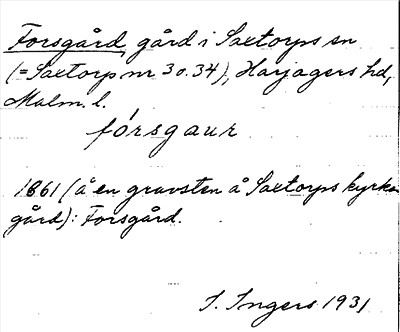 Forsgård, gård i Saxtorps sn
(= Saxtorp nr 3 o. 34), Harjagers hd,
Malm. l.
fórsgaur
1861 (å en gravsten å Saxtorps kyrko
gård): Forsgård.
I. Ingers 1931